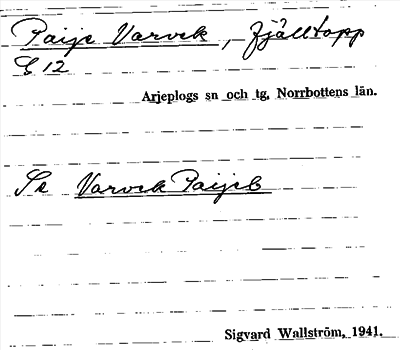 Paije Varvek, fjälltopp
G 12
Arjeplogs sn och tg. Norrbottens län.
Se Varvek Paijeb
Sigvard Wallström, 1941.